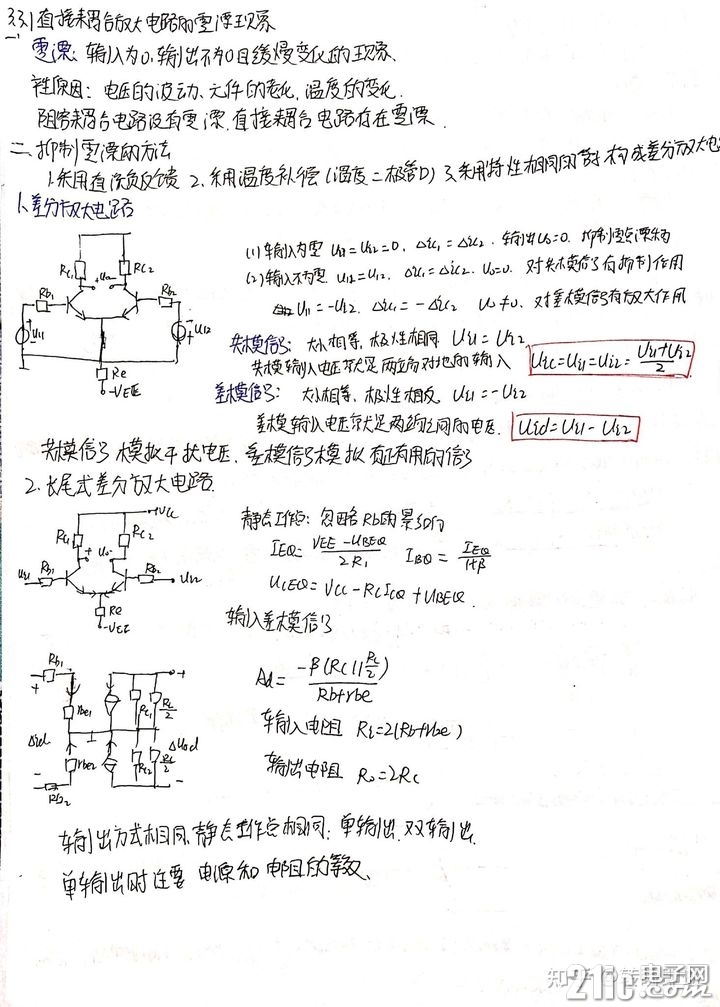 3.3.1 直接耦合放大电路的零漂现象
一、
零漂: 输入为0,输出不为0且缓慢变化的现象.
性原因: 电压的波动、元件的老化、温度的变化.
阻容耦合电路没有零漂,直接耦合电路存在零漂.
二、抑制零漂的方法
1.采用直流负反馈 2.采用温度补偿(温度二极管D) 3.采用特性相同的管 构成差分放大电
1.差分放大电路
Rc1 Uo Rc2
Rb1 Rb2
Ui1 Ui2
Re
-VEE
(1)输入为零 Ui1=Ui2=0, Δic1=Δic2. 输出Uo=0.
(2)输入不为零. Ui1=Ui2, Δic1=Δic2. Uo=0. 对共模信号有抑制作用
Ui1=-Ui2. Δic1=-Δic2 Uo≠0. 对差模信号有放大作用
共模信号: 大小相等、极性相同 Ui1=Ui2
共模输入电压就是两端对地的输入 Uic=Ui1=Ui2=(Ui1+Ui2)/2
差模信号: 大小相等、极性相反 Ui1=-Ui2
差模输入电压就是两端之间的电压. Uid=Ui1-Ui2
共模信号模拟干扰电压. 差模信号模拟真正有用的信号
2.长尾式差分放大电路.
+VCC
Rc1 + Uo - Rc2
Ui1 Rb1 Rb2 Ui2
Re
-VEE
静态工作点: 忽略Rb的影响
IEQ=(VEE-UBEQ)/2R1 IBQ=IEQ/(1+β)
UCEQ=VCC-RcICQ+UBEQ.
输入差模信号
Rb1
rbe1 Rc1 RL/2
Δid ΔUod
rbe2 Rc2 RL/2
Rb2
Ad=-β(Rc||RL/2)/(Rb+rbe)
输入电阻 Ri=2(Rb+rbe)
输出电阻 Ro=2Rc
输出方式相同,静态工作点相同: 单输出,双输出.
单输出时注要 电源和电阻的等效.
知乎
21ic电子网
.com